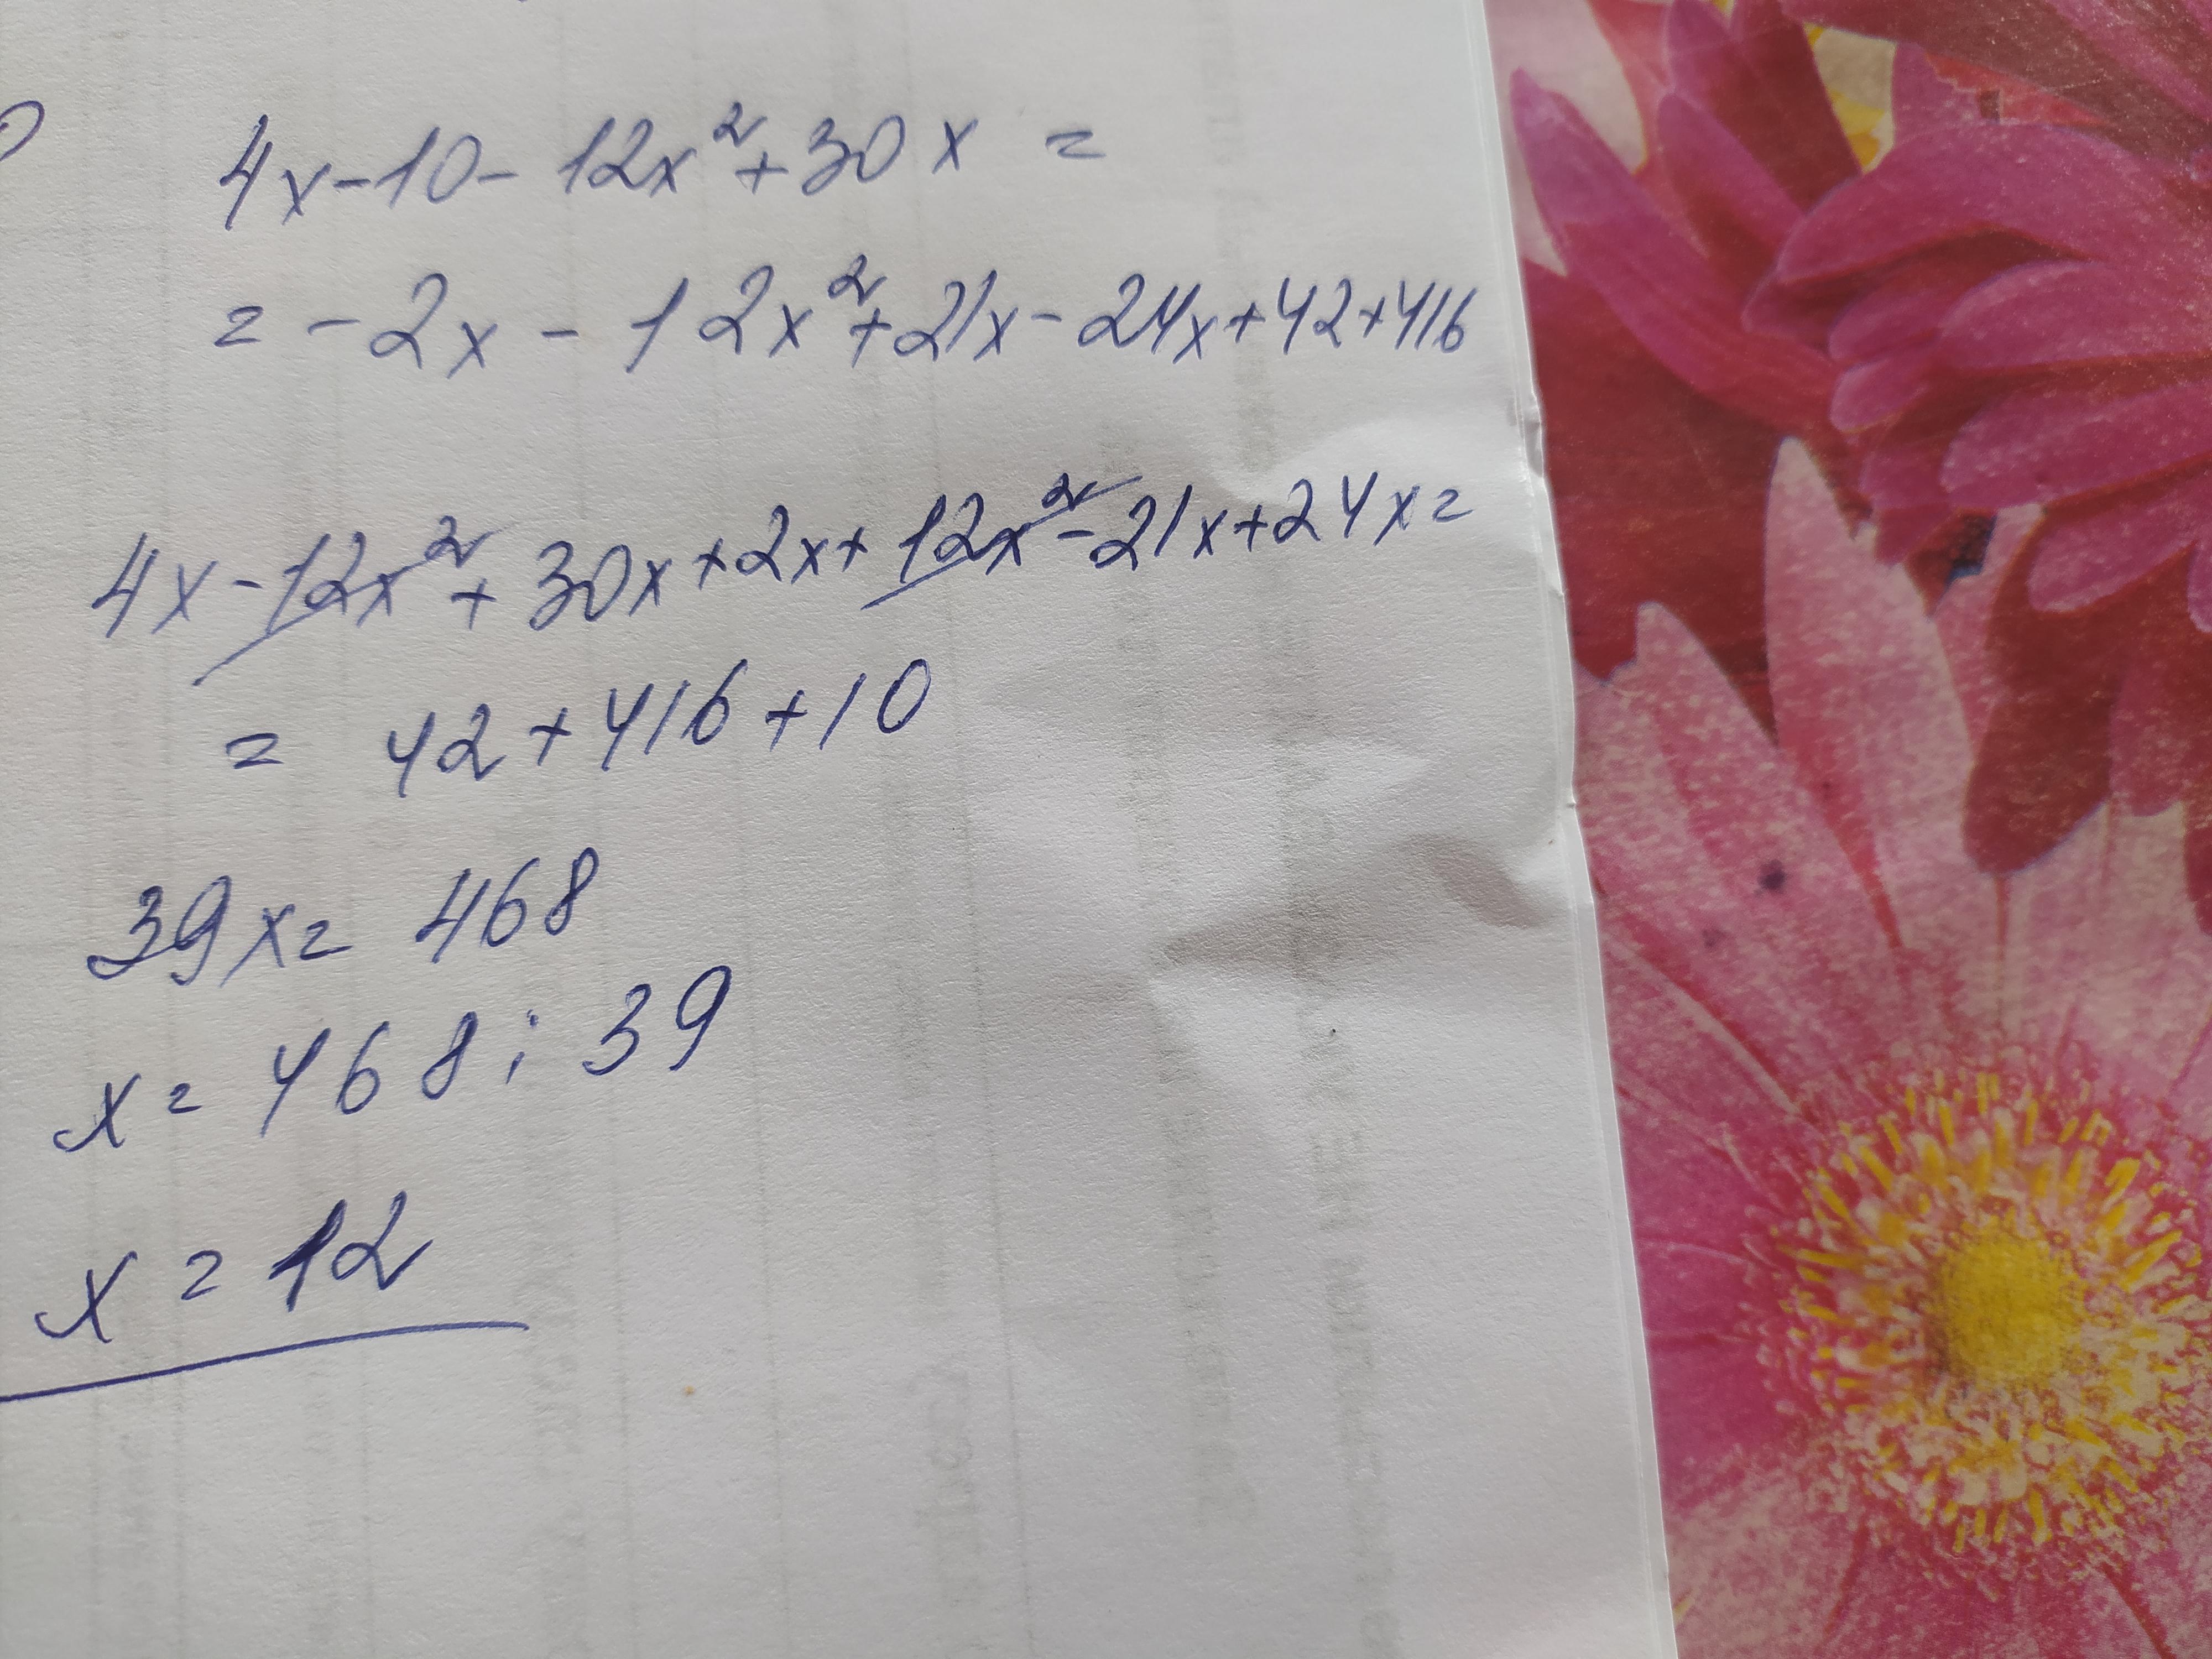 4x-10-12x²+30x=
=-2x-12x²+21x-24x+42+416
4x-12x²+30x+2x+12x²-21x+24x=
= 42+416+10
39x= 468
x= 468:39
x=12